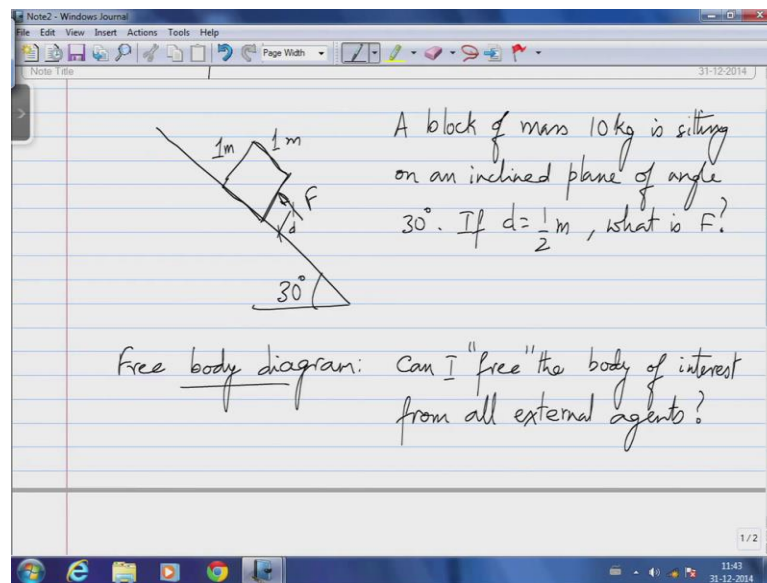 Note2 - Windows Journal
File Edit View Insert Actions Tools Help
Page Width
Note Title
31-12-2014
1m 1m
F
d
30°
A block of mass 10kg is sitting
on an inclined plane of angle
30°. If d = 1/2 m, what is F?
Free body diagram: Can I "free" the body of interest
from all external agents?
1 / 2
11:43
31-12-2014